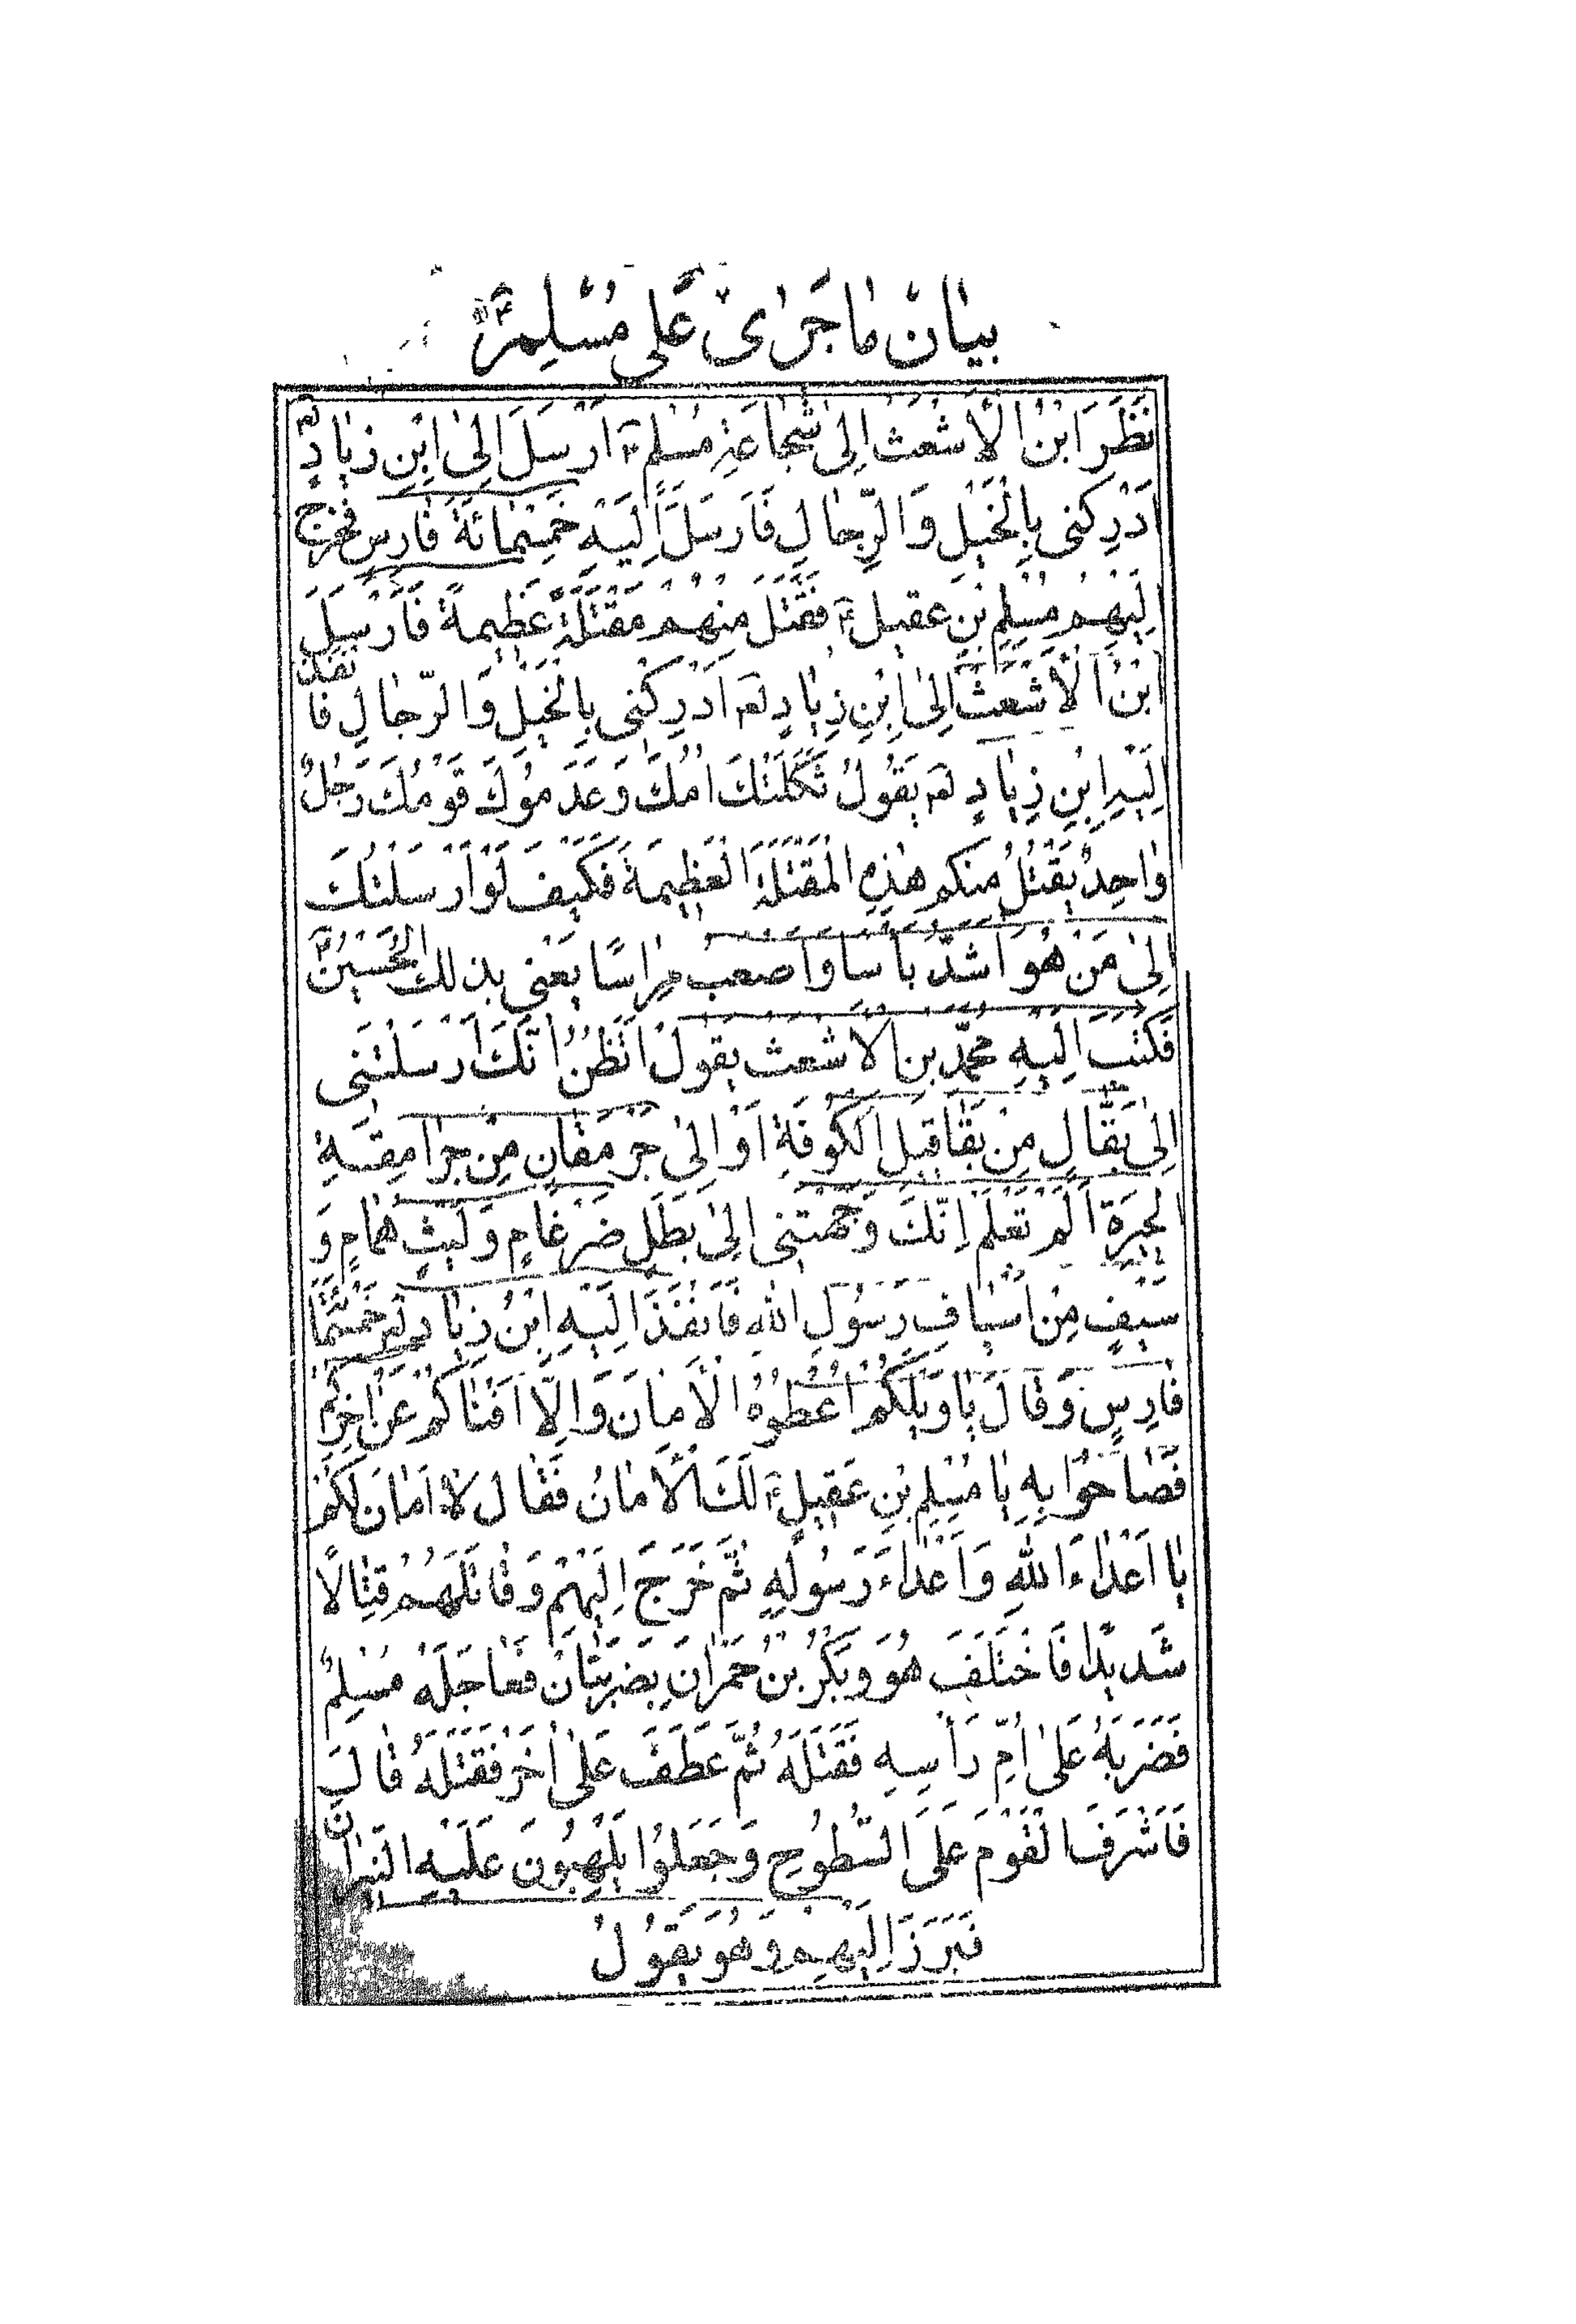 بيٰانْ مٰا جَرٰى عَلى مُسْلِم
نَظَرَ ابْنُ الْأَشْعَثُ اِلىٰ شُجٰاعَةِ مُسْلِم اَرْسَلَ اِلىٰ ابْنِ زِيٰادٍ
اَدْرِكنى بِالْخَيْلِ وَالرِّجٰالِ فَاَرسَلَ اِلَيْهِ خَمْسَمٰائَةَ فٰارِسٍ فخرج
اِلَيْهِمْ مُسْلِمِ بْنِ عقيل فَقَتَلَ مِنْهُمْ مَقْتَلَةً عَظيمَةً فَاَرْسَلَ
ابْنُ الْأَشْعَثُ اِلىٰ ابْنِ زِيٰادٍ لعم اَدْرِكْنى بِالْخَيْلِ وَالرّجٰالِ فَانفذ
اِلَيْهِ ابْنِ زِيٰادٍ لعم يَقُولُ ثَكَلَتْكَ اُمُّكَ وَعَدَمُوكَ قَوْمُكَ رَجُلٌ
وٰاحِدٌ يَقْتُلُ مِنكم هٰذِهِ الْمَقْتَلَةَ الْعَظيمَةَ فَكَيْفَ لَوْ اَرْسَلْتُكَ
اِلىٰ مَنْ هُوَ اَشَدُّ بأسا واصعب مِرٰاسًا يَعْنى بذلك الْحُسَيْنُ
فَكَتَبَ اِلَيْهِ محمّد بن الاشعث يقول اَتَظُنُّ اَنَّكَ اَرْسَلْتَنى
اِلىٰ بَقّٰالٍ مِنْ بَقٰاقيلِ الْكُوفَةِ اَوْ اِلىٰ جَرْمَقٰانٍ مِنْ جرٰامِقَةِ
الْحِيرَةِ اَلَمْ تَعْلَمْ اِنَّكَ وَجَّهْتَنى اِلىٰ بَطَلٍ ضَرْغٰامٍ وَلَيْثٍ هُمٰامٍ وَ
سَيْفٍ مِنْ اَسْيٰافِ رَسُولِ اللهِ فَاَنْفَذَ اِلَيْهِ ابْنُ زِيٰادٍ لعم خَمْسَمٰا
فٰارِسٍ وَقٰالَ يٰا وَيْلَكُمْ اُعْطُوهُ الْأَمٰانَ وَاِلّا اَفْنٰاكُمْ عَنْ اٰخِرِكُمْ
فَصٰاحُوا بِهِ يٰا مُسْلِمِ بْنِ عَقيلٍ لَكَ الْأَمٰانُ فَقٰالَ لاٰ اَمٰانَ لَكُمْ
يٰا اَعْدٰاءَ اللهِ وَاَعْدٰاءَ رَسُولِهِ ثُمَّ خَرَجَ اِلَيْهِمْ وَقٰاتَلَهُمْ قِتٰالًا
شَديدًا فَاخْتَلَفَ هُوَ وبَكْرُ بْنُ حَمْرٰانَ بِضَرْبَتٰانِ فَعٰاجَلَهُ مُسْلِمٌ
فَضَرَبَهُ عَلىٰ اُمِّ رَأسِهِ فَقَتَلَهُ ثُمَّ عَطَفَ عَلىٰ اٰخَرَ فَقَتَلَهُ قٰالَ
فَاَشْرَفَ الْقَوْمَ عَلَى السُّطُوحِ وَجَعَلُوا يَلْهِبُونَ عَلَيْهِ النّيرٰانَ
فَبَرَزَ اِلَيْهِمْ وَهُوَ يَقُولُ